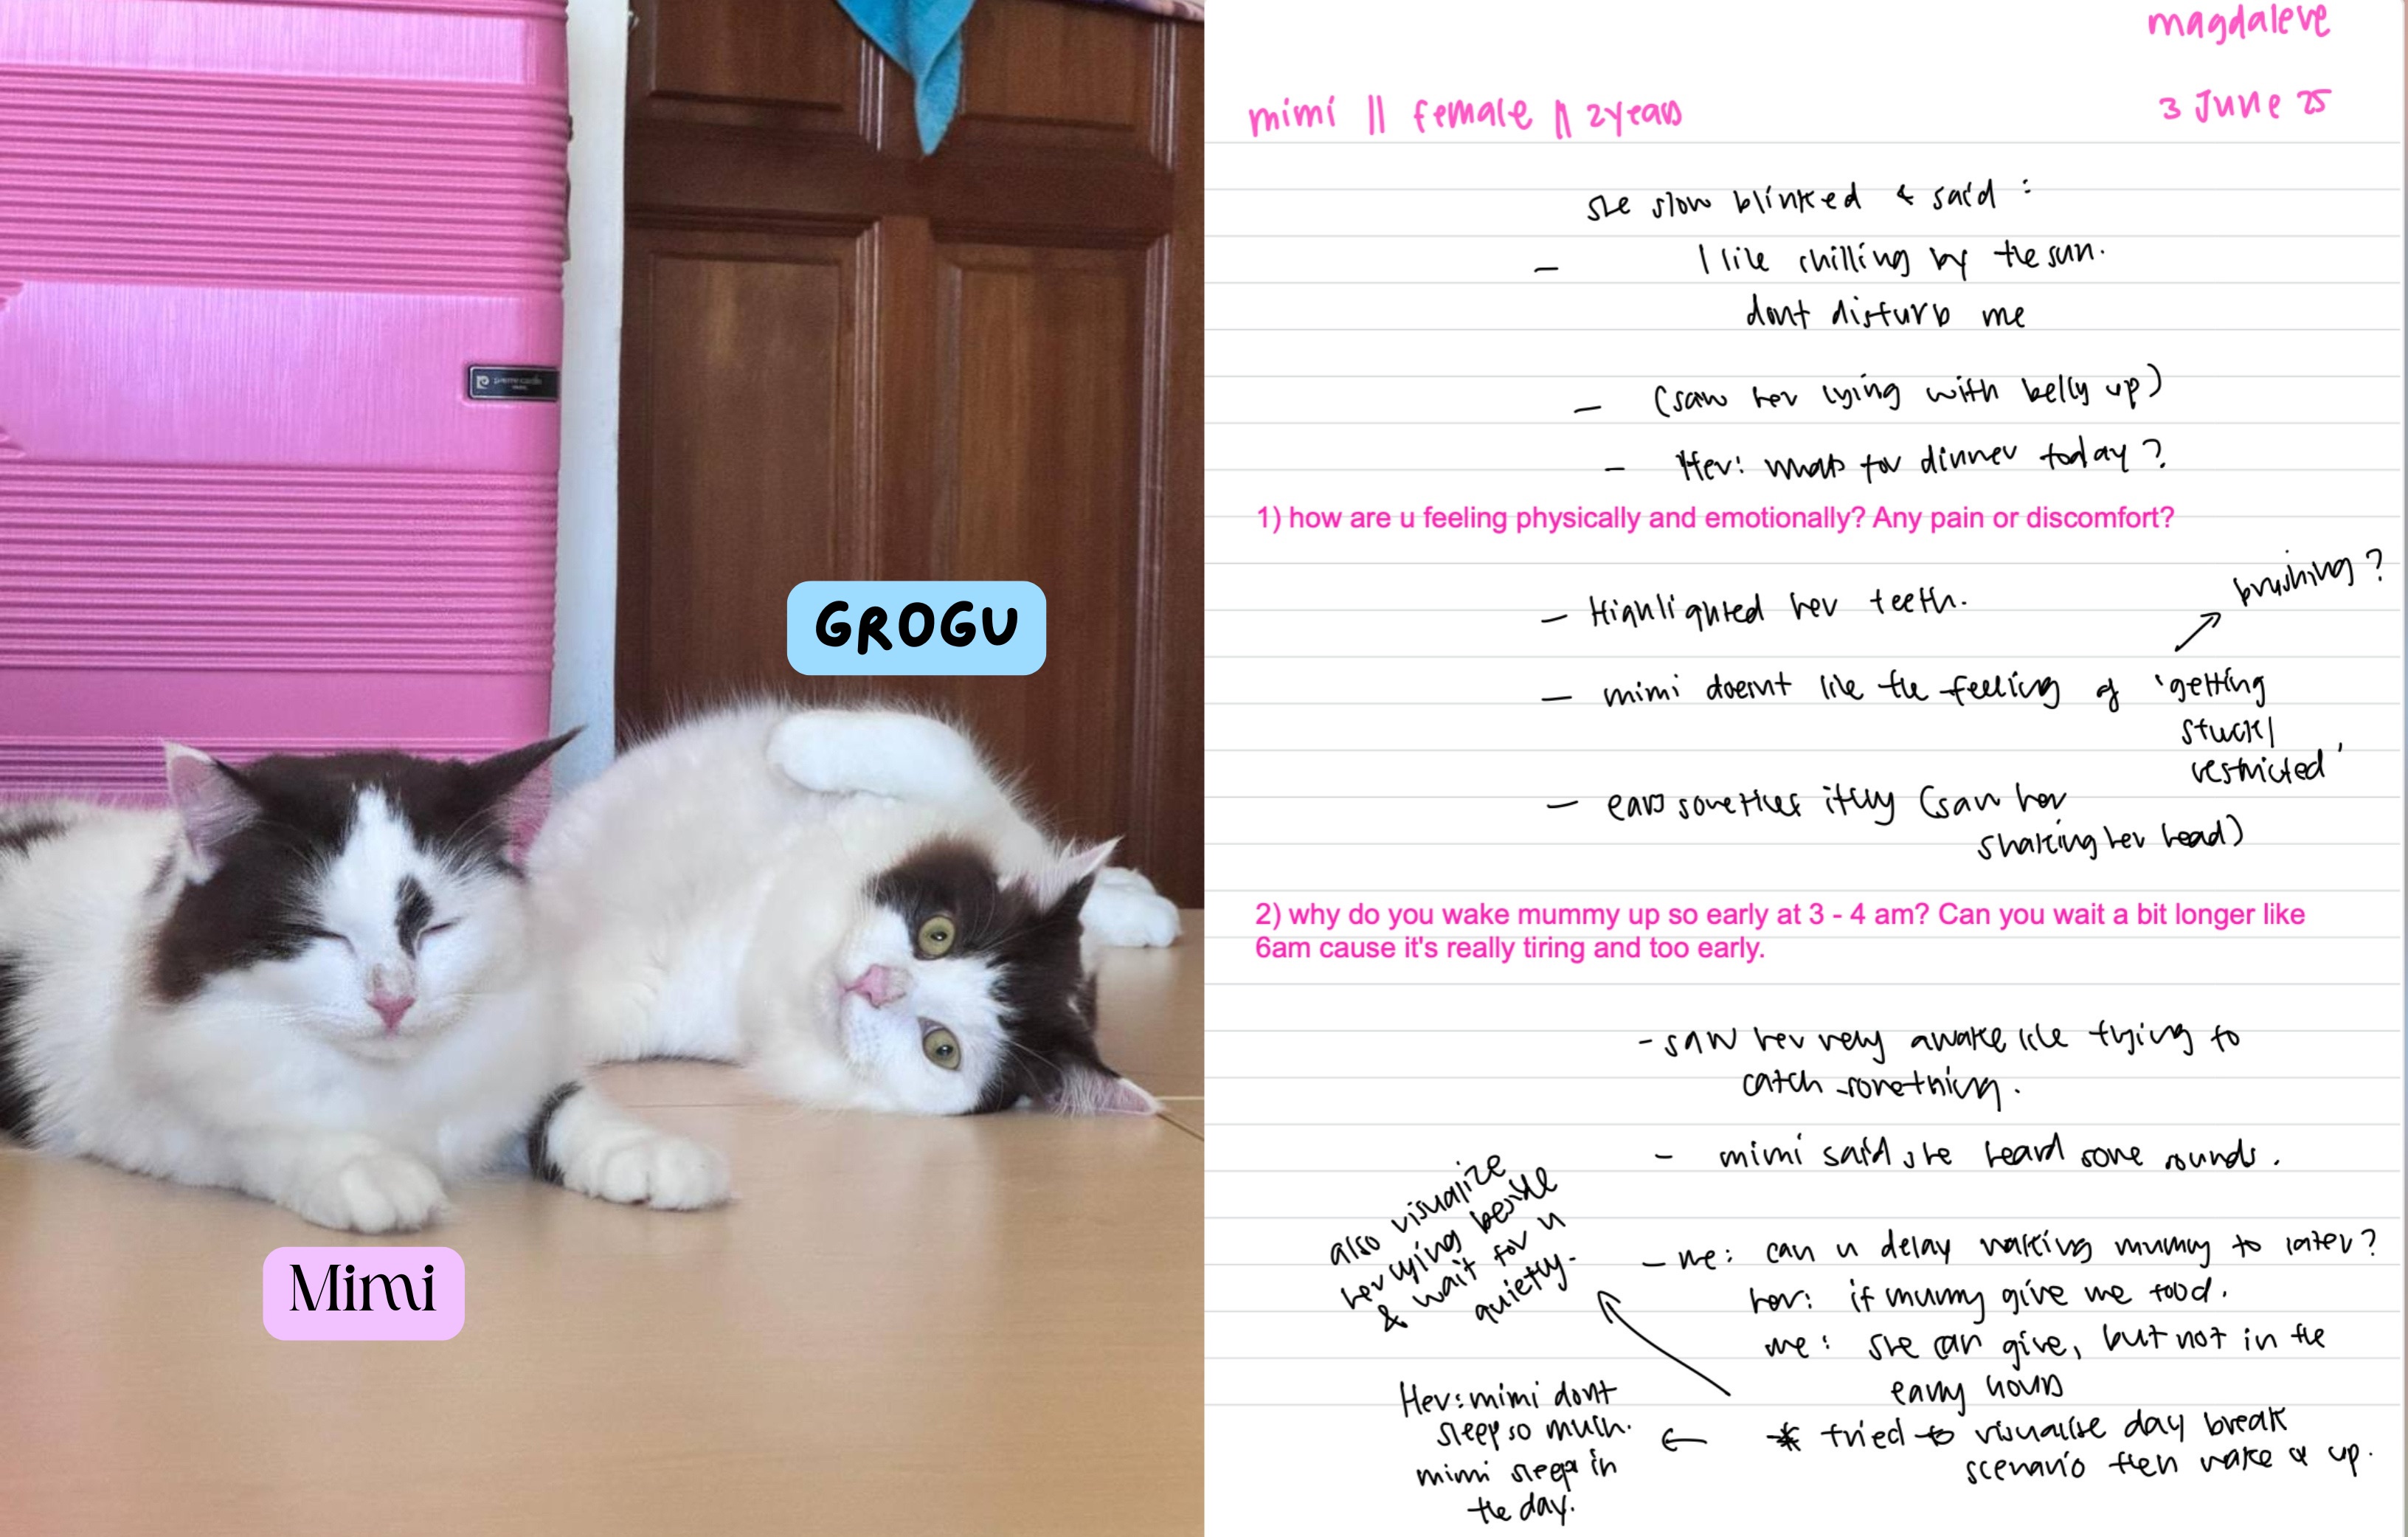 pierre cardin
GROGU
Mimi
magdalene
3 June 25
mimi || female || 2years
she slow blinked & said :
– I like chilling by the sun.
dont disturb me
– (saw her lying with belly up)
– Her: whats for dinner today?
1) how are u feeling physically and emotionally? Any pain or discomfort?
– Highlighted her teeth.
brushing?
– mimi doesnt like the feeling of 'getting
stuck/
restricted'
– ears sometimes itchy (saw her
shaking her head)
2) why do you wake mummy up so early at 3 - 4 am? Can you wait a bit longer like
6am cause it's really tiring and too early.
- saw her very awake like trying to
catch something.
- mimi said she heard some sounds.
– me: can u delay waking mummy to later?
her: if mummy give me food.
me: she can give, but not in the
early hours
* tried to visualise day break
scenario then wake u up.
also visualize
her lying beside
& wait for u
quietly.
Her: mimi dont
sleep so much.
mimi sleep in
the day.